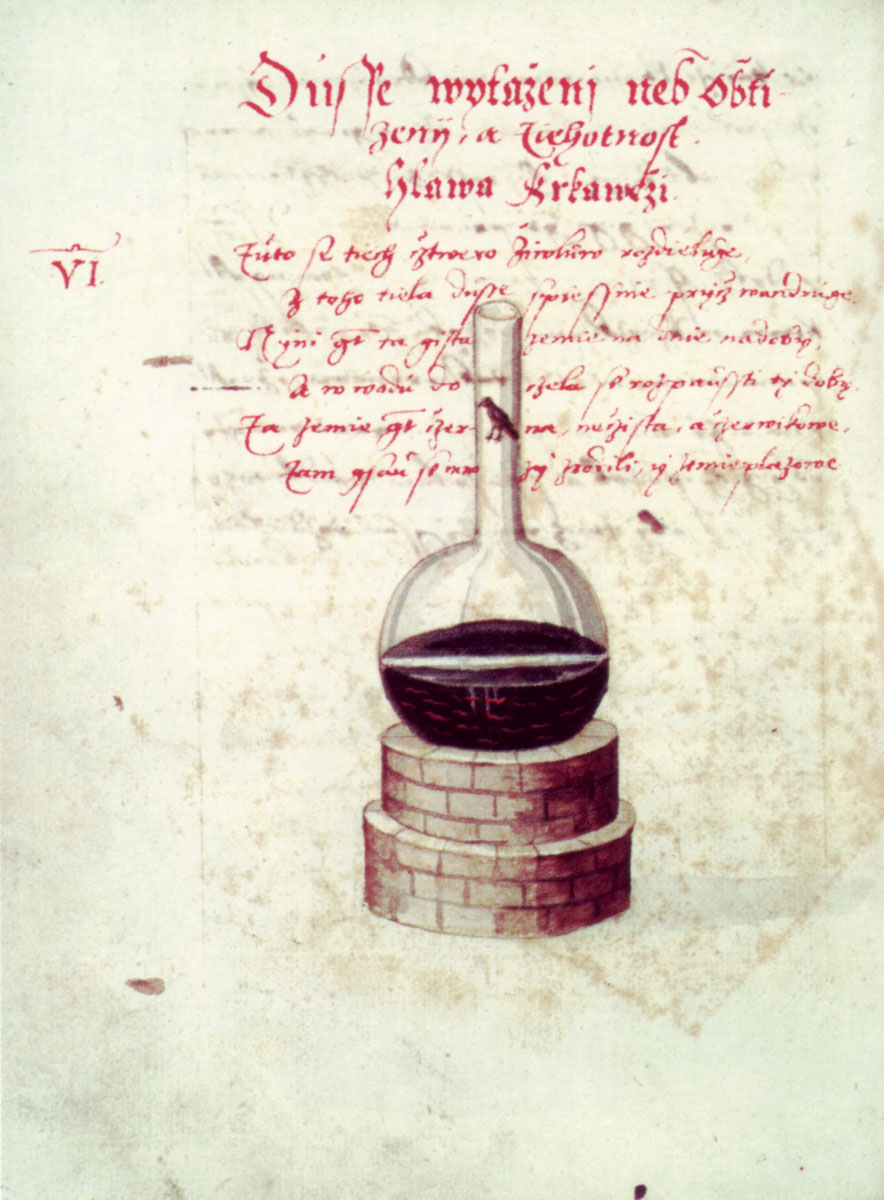 Dusse wytaženj neb Obti-
ženij, a Tiehotnost.
Hlawa Krkawčži.
VI.
Tuto se tiech čztwero Žiwluow rozdieluge,
Z toho tiela dusse spiessnie pryčz wandruge.
Nynj gt ta gista zemie na dnie nadoby,
A w wodu do czela se rozpaussti ty doby.
Ta zemie gt čzerna, nečzista, a čzerwikowe,
Tam gsau se w zrodili, y zemieplazowe